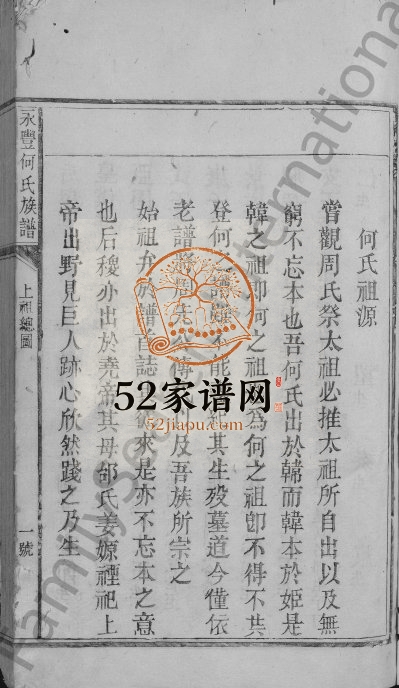 永豐何氏族譜
上祖總圖
一號
何氏祖源
嘗觀周氏祭太祖必推太祖所自出以及無
窮不忘本也吾何氏出於韓而韓本於姬是
韓之祖卽何之祖 為何之祖卽不得不共
登何 不能 其生歿墓道今僅依
老譜將周 傳 及吾族所宗之
始祖弁於譜首誌 來是亦不忘本之意
也后稷亦出於堯帝其母邰氏姜嫄禋祀上
帝出野見巨人跡心欣然踐之乃生
52家谱网
52jiapu.com
Familysearch International